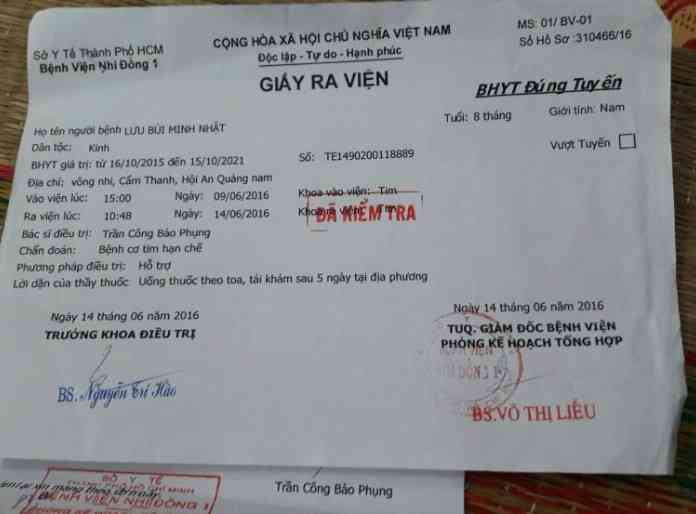 Sở Y Tế Thành Phố HCM
Bệnh Viện Nhi Đồng 1
CỘNG HÒA XÃ HỘI CHỦ NGHĨA VIỆT NAM
Độc lập - Tự do - Hạnh phúc
MS: 01/ BV-01
Số Hồ Sơ :310466/16
GIẤY RA VIỆN
BHYT Đúng Tuyến
Họ tên người bệnh LƯU BÙI MINH NHẬT
Tuổi: 8 tháng
Giới tính: Nam
Dân tộc: Kinh
Vượt Tuyến
BHYT giá trị: từ 16/10/2015 đến 15/10/2021
Số: TE1490200118889
Địa chỉ: võng nhi, Cẩm Thanh, Hội An Quảng nam
Vào viện lúc: 15:00 Ngày: 09/06/2016 Khoa vào viện: Tim
Ra viện lúc: 10:48 Ngày: 14/06/2016 Khoa ra viện: Tim
ĐÃ KIỂM TRA
Bác sĩ điều trị: Trần Công Bảo Phụng
Chẩn đoán: Bệnh cơ tim hạn chế
Phương pháp điều trị: Hỗ trợ
Lời dặn của thầy thuốc Uống thuốc theo toa, tái khám sau 5 ngày tại địa phương
Ngày 14 tháng 06 năm 2016
TRƯỞNG KHOA ĐIỀU TRỊ
BS. Nguyễn Trí Hào
Ngày 14 tháng 06 năm 2016
TUQ. GIÁM ĐỐC BỆNH VIỆN
PHÒNG KẾ HOẠCH TỔNG HỢP
BS.VÕ THỊ LIỄU
SỞ Y TẾ
THÀNH PHỐ HỒ CHÍ MINH
BỆNH VIỆN NHI ĐỒNG 1
Trần Công Bảo Phụng